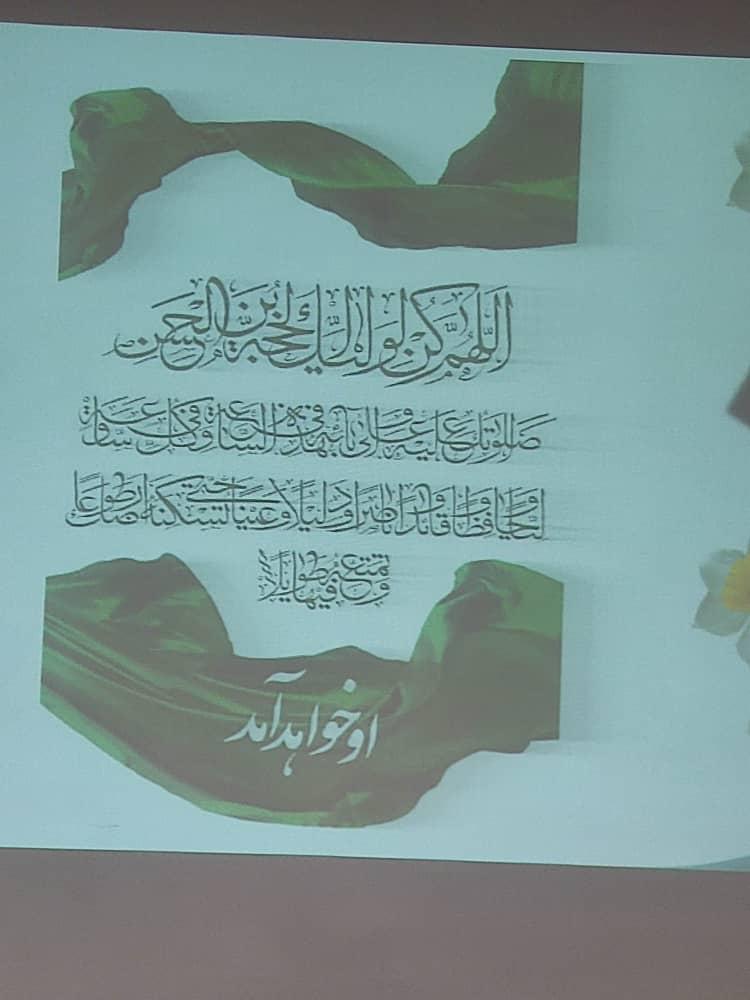 اللَّهُمَّ كُنْ لِوَلِيِّكَ الْحُجَّةِ بْنِ الْحَسَنِ
صَلَواتُكَ عَلَيْهِ وَعَلى آبائِهِ فِي هذِهِ السَّاعَةِ وَفِي كُلِّ سَاعَةٍ
وَلِيّاً وَحَافِظاً وَقَائِداً وَنَاصِراً وَدَلِيلاً وَعَيْناً حَتَّى تُسْكِنَهُ أَرْضَكَ طَوْعاً
وَتُمَتِّعَهُ فِيهَا طَوِيلاً
او خواهد آمد